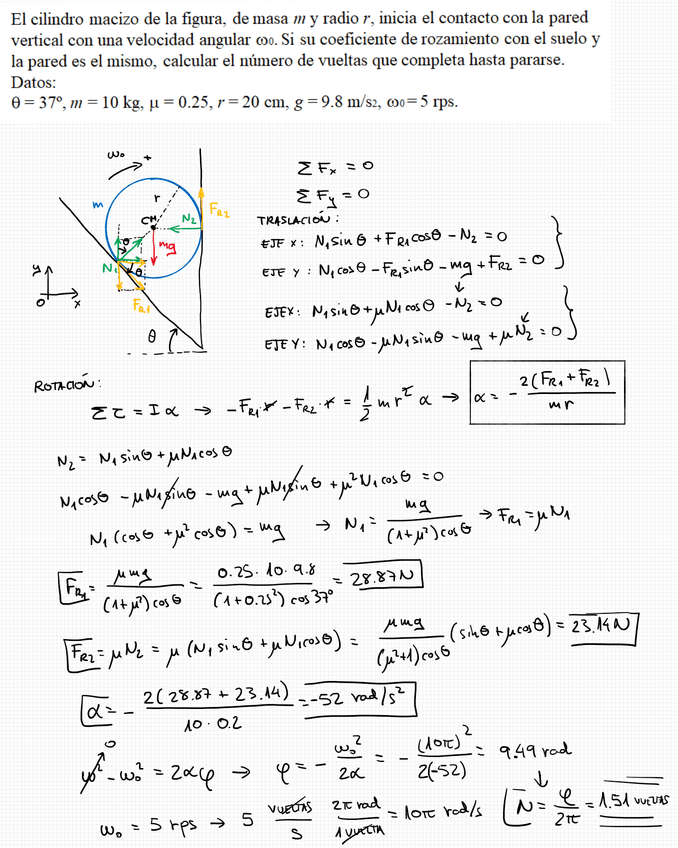 El cilindro macizo de la figura, de masa m y radio r, inicia el contacto con la pared
vertical con una velocidad angular ω₀. Si su coeficiente de rozamiento con el suelo y
la pared es el mismo, calcular el número de vueltas que completa hasta pararse.
Datos:
θ = 37º, m = 10 kg, μ = 0.25, r = 20 cm, g = 9.8 m/s2, ω₀ = 5 rps.
ω₀ +
m
r
CM
N₂
F_R2
mg
N₁
θ
θ
F_R1
y
O
x
θ
Σ Fx = 0
Σ Fy = 0
TRASLACIÓN:
EJE X: N₁ sin θ + F_R1 cos θ - N₂ = 0
EJE Y: N₁ cos θ - F_R1 sin θ - mg + F_R2 = 0
EJE X: N₁ sin θ + μN₁ cos θ - N₂ = 0
EJE Y: N₁ cos θ - μN₁ sin θ - mg + μN₂ = 0
ROTACIÓN:
Σ τ = I α → -F_R1·r - F_R2·r = 1/2 m r² α → α = - 2(F_R1 + F_R2)/mr
N₂ = N₁ sin θ + μN₁ cos θ
N₁ cos θ - μN₁ sin θ - mg + μN₁ sin θ + μ²N₁ cos θ = 0
N₁ (cos θ + μ² cos θ) = mg → N₁ = mg/(1+μ²) cos θ → F_R1 = μN₁
F_R1 = μmg/(1+μ²) cos θ = 0.25·10·9.8/(1+0.25²) cos 37º = 28.87 N
F_R2 = μN₂ = μ (N₁ sin θ + μN₁ cos θ) = μmg/(μ²+1) cos θ (sin θ + μ cos θ) = 23.14 N
α = - 2(28.87 + 23.14)/10·0.2 = -52 rad/s²
0
ω² - ω₀² = 2αφ → φ = - ω₀²/2α = - (10π)²/2(-52) = 9.49 rad
ω₀ = 5 rps → 5 VUELTAS/s 2π rad/1 VUELTA = 10π rad/s
N = φ/2π = 1.51 VUELTAS